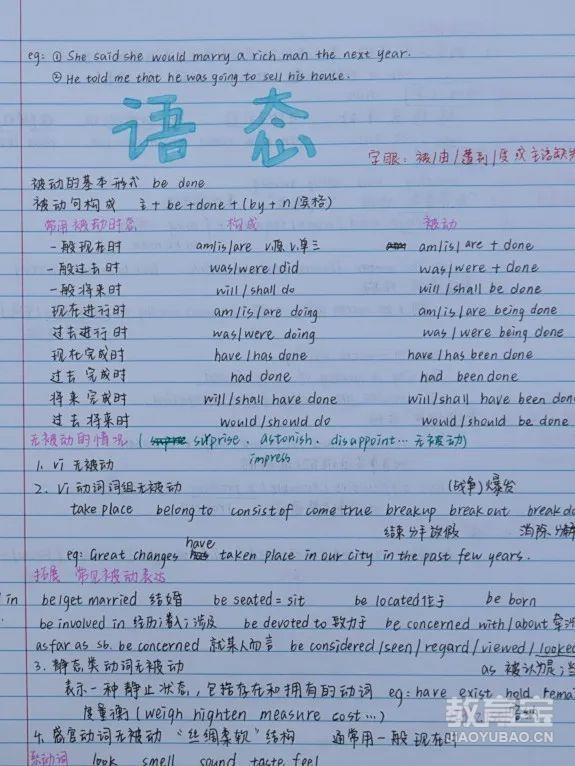 eg: ① She said she would marry a rich man the next year.
② He told me that he was going to sell his house.
语态
字眼: 被/由/遭到/受 或 主语缺失
被动的基本形式 be done
被动句构成 主+be+done+(by+n/宾格)
常用被动时态 构成 被动
一般现在时 am/is/are v.原 v.单三 am/is/are + done
一般过去时 was/were/did was/were + done
一般将来时 will/shall do will/shall be done
现在进行时 am/is/are doing am/is/are being done
过去进行时 was/were doing was/were being done
现在完成时 have/has done have/has been done
过去完成时 had done had been done
将来完成时 will/shall have done will/shall have been don
过去将来时 would/should do would/should be done
无被动的情况 ( surprise、astonish、disappoint… 无被动)
impress
1. vi 无被动
2. vi 动词词组无被动 (战争)爆发
take place belong to consist of come true break up break out break do
结束 分手 放假 消除 分解
have
eg: Great changes taken place in our city in the past few years.
拓展 常见被动表达
d in be/get married 结婚 be seated = sit be located 位于 be born
be involved in 经历;潜入;涉及 be devoted to 致力于 be concerned with/about 牵涉
as far as sb. be concerned 就某人而言 be considered/seen/regard/viewed/looked
as 被认为是;当
3. 静态类动词无被动
表示一种静止状态,包括存在和拥有的动词 eg: have exist hold remai
度量衡 (weigh highten measure cost …)
4. 感官动词无被动 "丝绸柔软"结构 通常用一般现在时
系动词 look smell sound taste feel
教育宝
JIAOYUBAO.CN